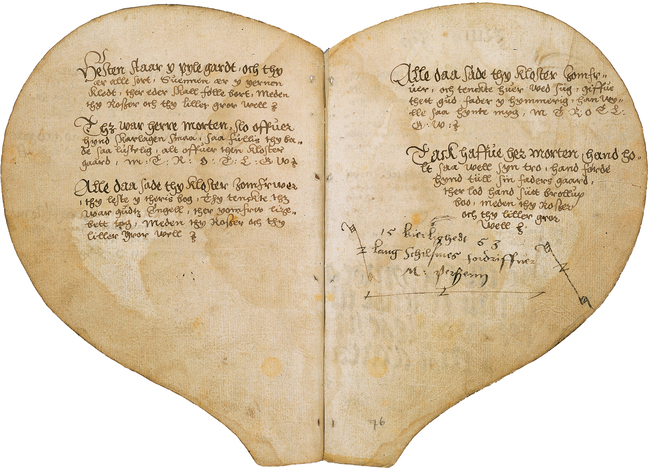 Hesten staar y pyle gardt, och thy
ær alle sort, Suennen ær y gernen
Kledt, ther eder skall følle bort, Meden
thy Roßer och thy lillier gror well
Thz war herre morten, slo offuer
hynd skarlagen smaa, saa fullis thy ba¬
de saa lustelig, alt offuer then Kloster
gaard, m: T: R: O: T: L: G: W:
Alle daa sade thy Kloster Jomfruer
, thy leste y theris bog, Thy tenckte thz
war gudtz Engell, ther Jomfrw lize¬
bett tog, Meden thy Roßer och thy
lillier gror well
Alle daa sade thy Kloster Jomfr¬
uer, och tenckte huer wed sug, giffue
thett gud, fader y hymmerig, han wo¬
lle saa hente myg, M T R O T L:
G: W:
Tack haffue her Morten, hand ho¬
lt saa well syn tro, handførde
hynd till sin faders gaard,
ther lod hand sitt brollup
boo, meden thy Roßer
och thy lillier gror
well
15 kierlighedt 63
lang Schilsmes fordriffuer
M:
76